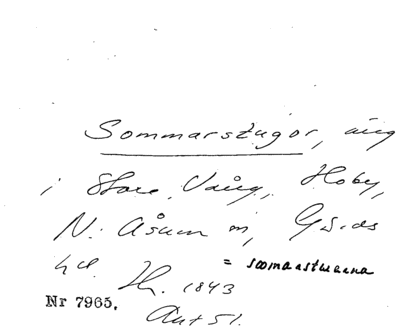 Sommarstugor, äng
i Store Vång, Hoby,
N. Åsum sn, Gärds
hd. Th. 1843
= sommarstuorna
Nr 7965. Aut 51.